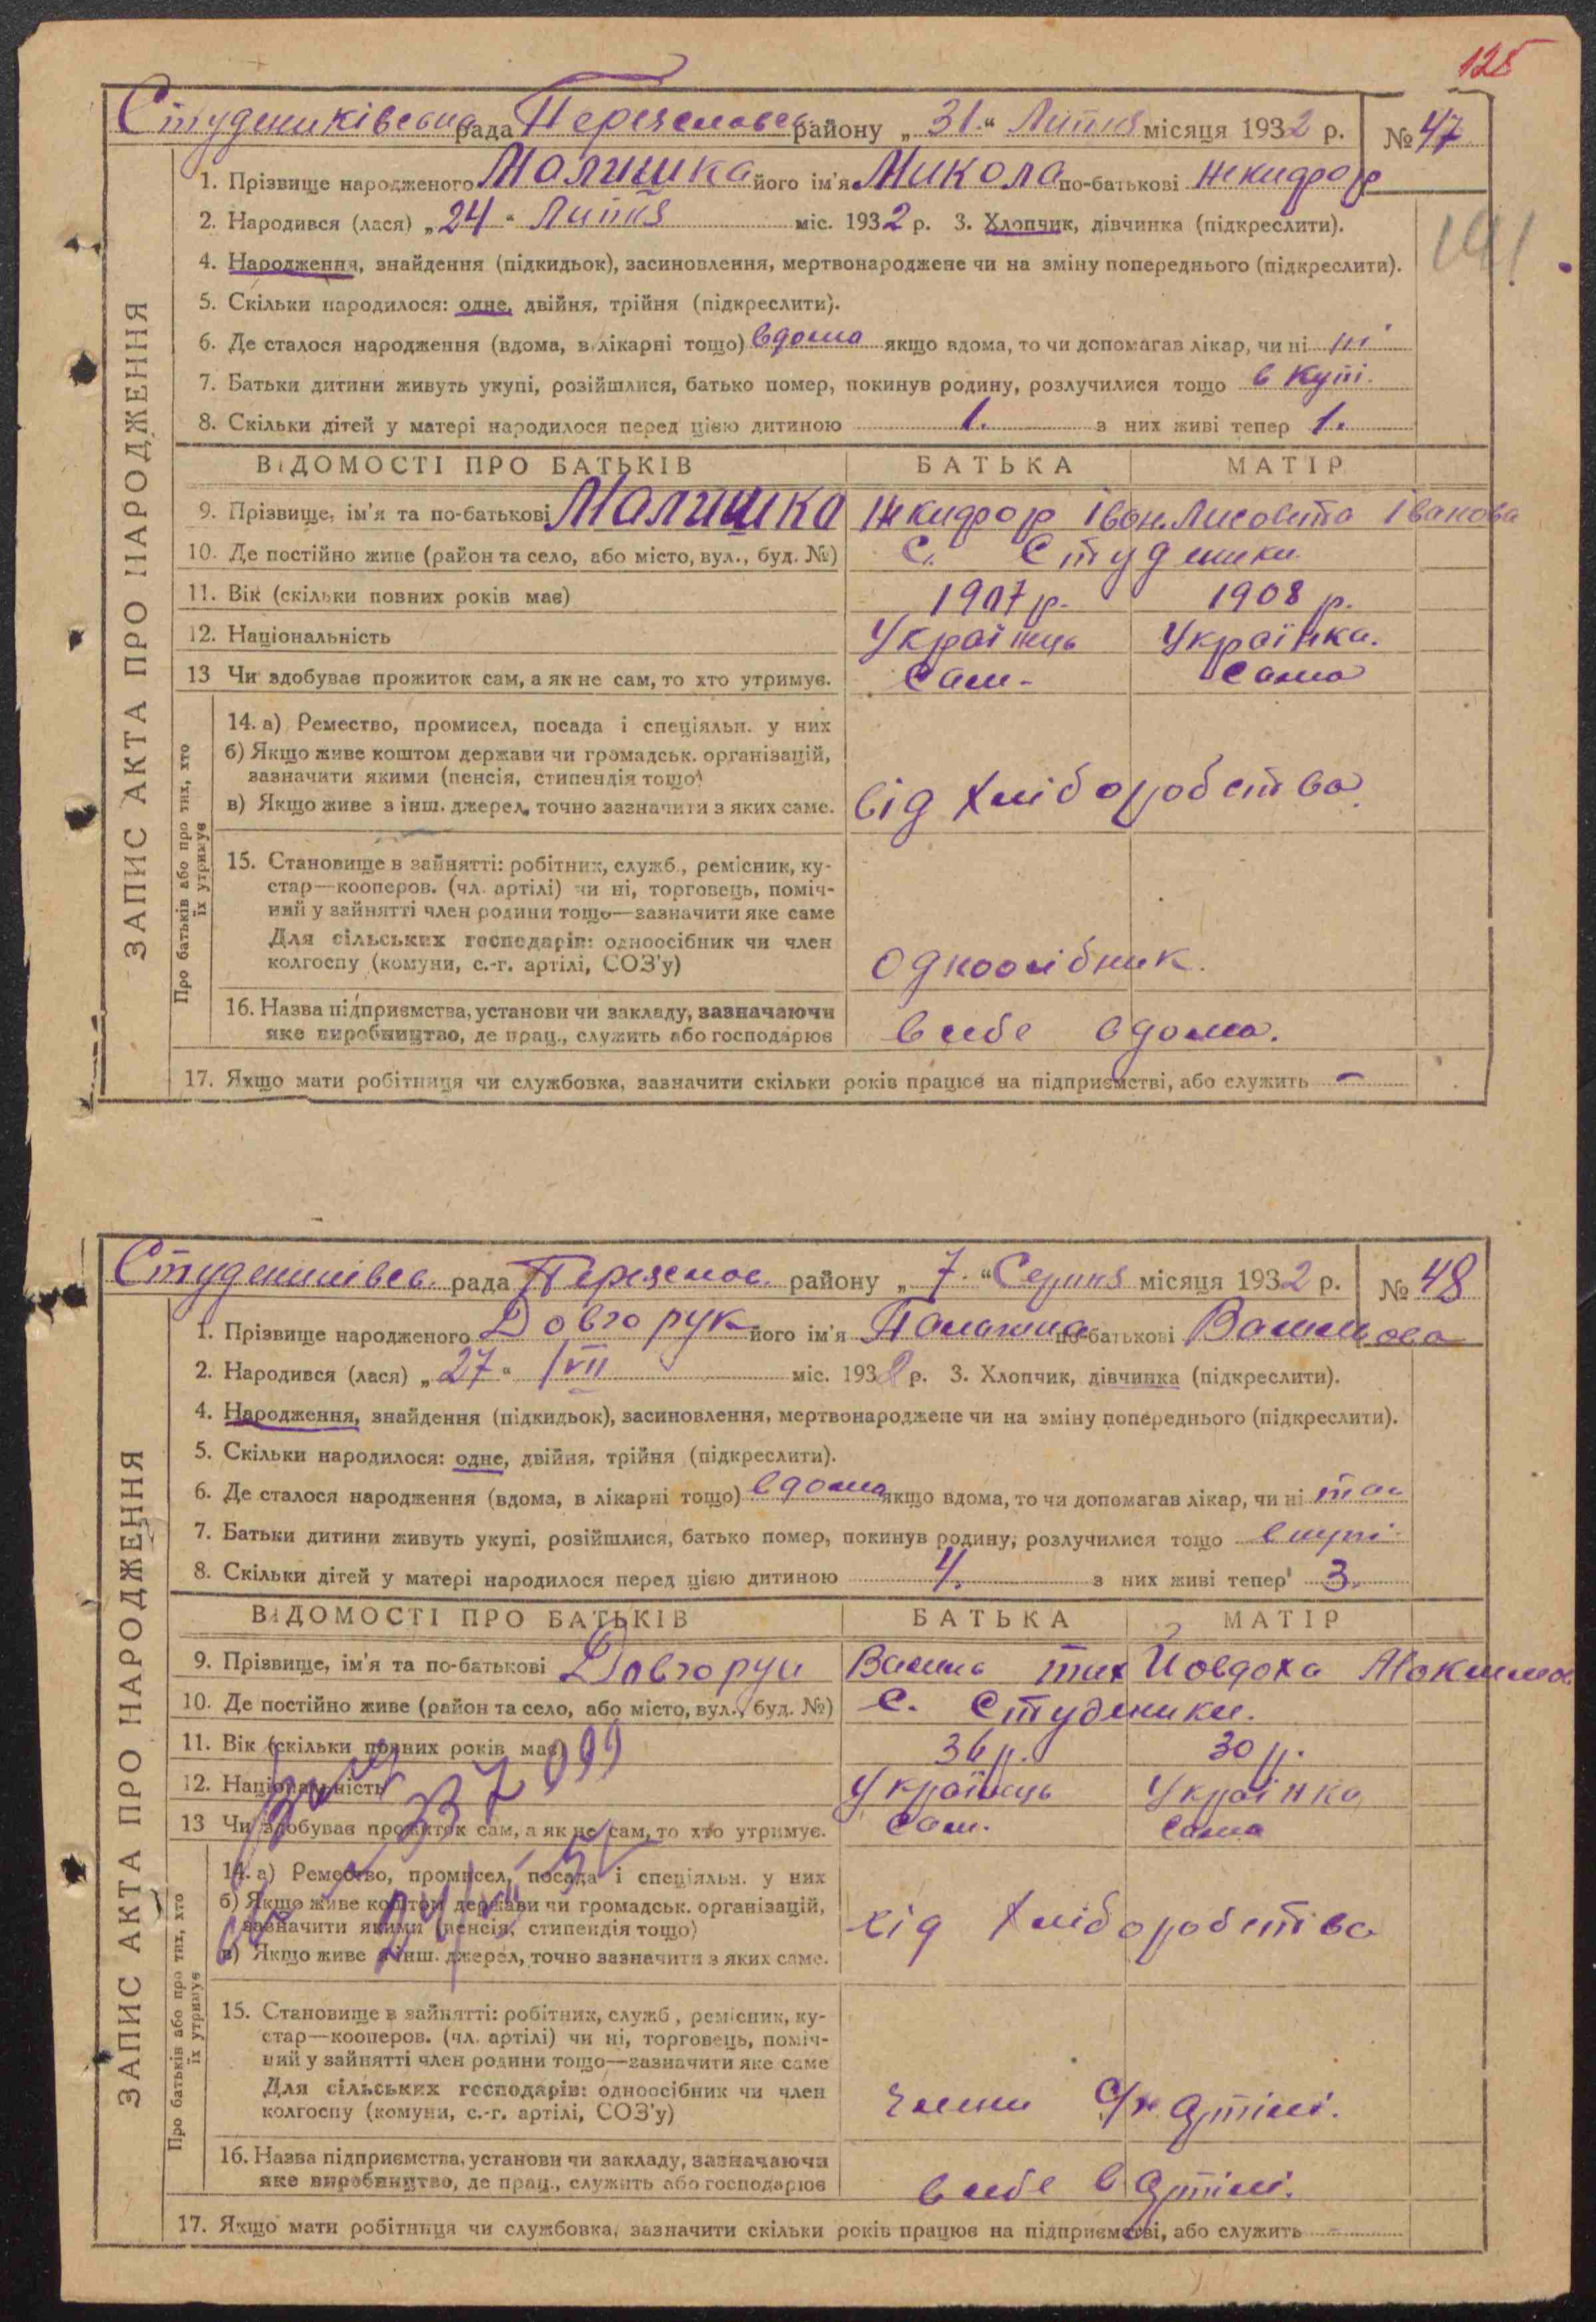 125
Студениківська рада Переяславсь району „31.“ Липня місяця 1932 р. № 47
1. Прізвище народженого Малишка його ім'я Микола по-батькові Никифор
2. Народився (лася) „24“ Липня міс. 1932 р. 3. Хлопчик, дівчинка (підкреслити).
4. Народження, знайдення (підкидьок), засиновлення, мертвонароджене чи на зміну попереднього (підкреслити).
5. Скільки народилося: одне, двійня, трійня (підкреслити).
6. Де сталося народження (вдома, в лікарні тощо) вдома якщо вдома, то чи допомагав лікар, чи ні ні
7. Батьки дитини живуть укупі, розійшлися, батько помер, покинув родину, розлучилися тощо в купі.
8. Скільки дітей у матері народилося перед цією дитиною 1. з них живі тепер 1.
ЗАПИС АКТА ПРО НАРОДЖЕННЯ
ВІДОМОСТІ ПРО БАТЬКІВ БАТЬКА МАТІР
9. Прізвище, ім'я та по-батькові Малишка Никифор Іван. Лисовита Іванова
10. Де постійно живе (район та село, або місто, вул., буд. №) С. Студеники
11. Вік (скільки повних років має) 1907 р. 1908 р.
12. Національність Українець Українка.
13 Чи здобуває прожиток сам, а як не сам, то хто утримує. Сам. Сама
Про батьків або про тих, хто
їх утримує
14. а) Ремество, промисел, посада і спеціяльн. у них
б) Якщо живе коштом держави чи громадськ. організацій,
зазначити якими (пенсія, стипендія тощо)
в) Якщо живе з інш. джерел, точно зазначити з яких саме. від хліборобства
15. Становище в зайнятті: робітник, служб., ремісник, ку-
стар—кооперов. (чл. артілі) чи ні, торговець, поміч-
ний у зайнятті член родини тощо—зазначити яке саме
Для сільських господарів: одноосібник чи член
колгоспу (комуни, с.-г. артілі, СОЗ'у) одноосібник.
16. Назва підприємства, установи чи закладу, зазначаючи
яке виробництво, де прац., служить або господарює в себе вдома.
17. Якщо мати робітниця чи службовка, зазначити скільки років працює на підприємстві, або служить -
Студениківсь. рада Переяслов. району „7.“ Серпня місяця 1932 р. № 48
1. Прізвище народженого Довгорук його ім'я по-батькові
2. Народився (лася) „27“ VII міс. 1932 р. 3. Хлопчик, дівчинка (підкреслити).
4. Народження, знайдення (підкидьок), засиновлення, мертвонароджене чи на зміну попереднього (підкреслити).
5. Скільки народилося: одне, двійня, трійня (підкреслити).
6. Де сталося народження (вдома, в лікарні тощо) вдома якщо вдома, то чи допомагав лікар, чи ні так
7. Батьки дитини живуть укупі, розійшлися, батько помер, покинув родину, розлучилися тощо вкупі
8. Скільки дітей у матері народилося перед цією дитиною 4. з них живі тепер 3.
ЗАПИС АКТА ПРО НАРОДЖЕННЯ
ВІДОМОСТІ ПРО БАТЬКІВ БАТЬКА МАТІР
9. Прізвище, ім'я та по-батькові Довгорук Василь тих Йовдоха Максимов
10. Де постійно живе (район та село, або місто, вул., буд. №) С. Студеники.
11. Вік (скільки повних років має) 36 р. 30 р.
12. Національність Українець Українка
13 Чи здобуває прожиток сам, а як не сам, то хто утримує. Сам. Сама
Про батьків або про тих, хто
їх утримує
14. а) Ремество, промисел, посада і спеціяльн. у них
б) Якщо живе коштом держави чи громадськ. організацій,
зазначити якими (пенсія, стипендія тощо)
в) Якщо живе з інш. джерел, точно зазначити з яких саме. від хліборобства
15. Становище в зайнятті: робітник, служб., ремісник, ку-
стар—кооперов. (чл. артілі) чи ні, торговець, поміч-
ний у зайнятті член родини тощо—зазначити яке саме
Для сільських господарів: одноосібник чи член
колгоспу (комуни, с.-г. артілі, СОЗ'у) члени С/г Артілі.
16. Назва підприємства, установи чи закладу, зазначаючи
яке виробництво, де прац., служить або господарює в себе в Артілі.
17. Якщо мати робітниця чи службовка, зазначити скільки років працює на підприємстві, або служить -